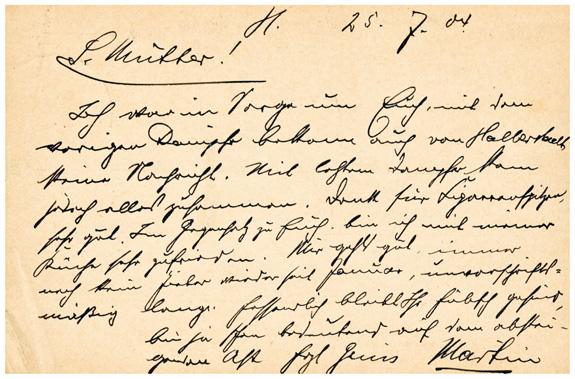 H. 25. 7. 04
L. Mutter!
Ich war in Sorge um Euch, mit dem
vorigen Dampfer bekam auch von Halberstadt
keine Nachricht. Mit letztem Dampfer kam
jedoch alles zusammen. Dank für Zigarrenspitzen,
sehr gut. Im Gegensatz zu Euch bin ich mit meiner
Küche sehr zufrieden. Mir geht's gut, immer
noch kein Fieber wieder seit Januar, unvorschrifts-
mäßig lange. Hoffentlich bleibt Ihr hübsch gesund,
bin ja schon bedeutend auf dem abstei-
genden Ast. Hzl Gruss Martin